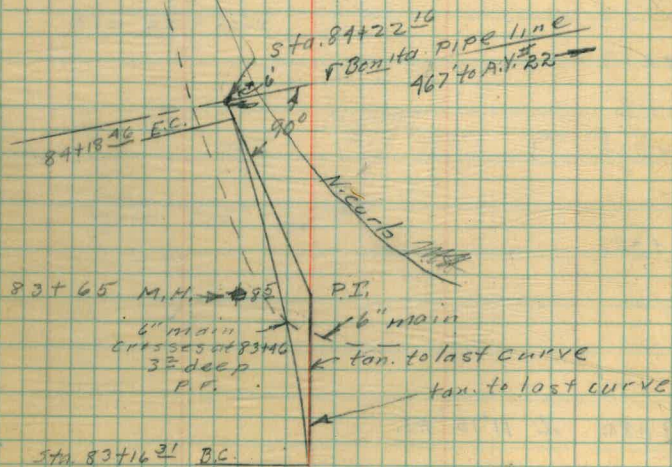 Sta. 84+22 16
Bonita pipe line
467' to A.V.# 22
6'
84+18 46 E.C.
90°
N. Curb
83+65 M.H. → 85 P.I.
6" main
crosses at 83+46
3 2 deep
P.F.
6" main
tan. to last curve
tan. to last curve
Sta. 83+16 31 B.C.